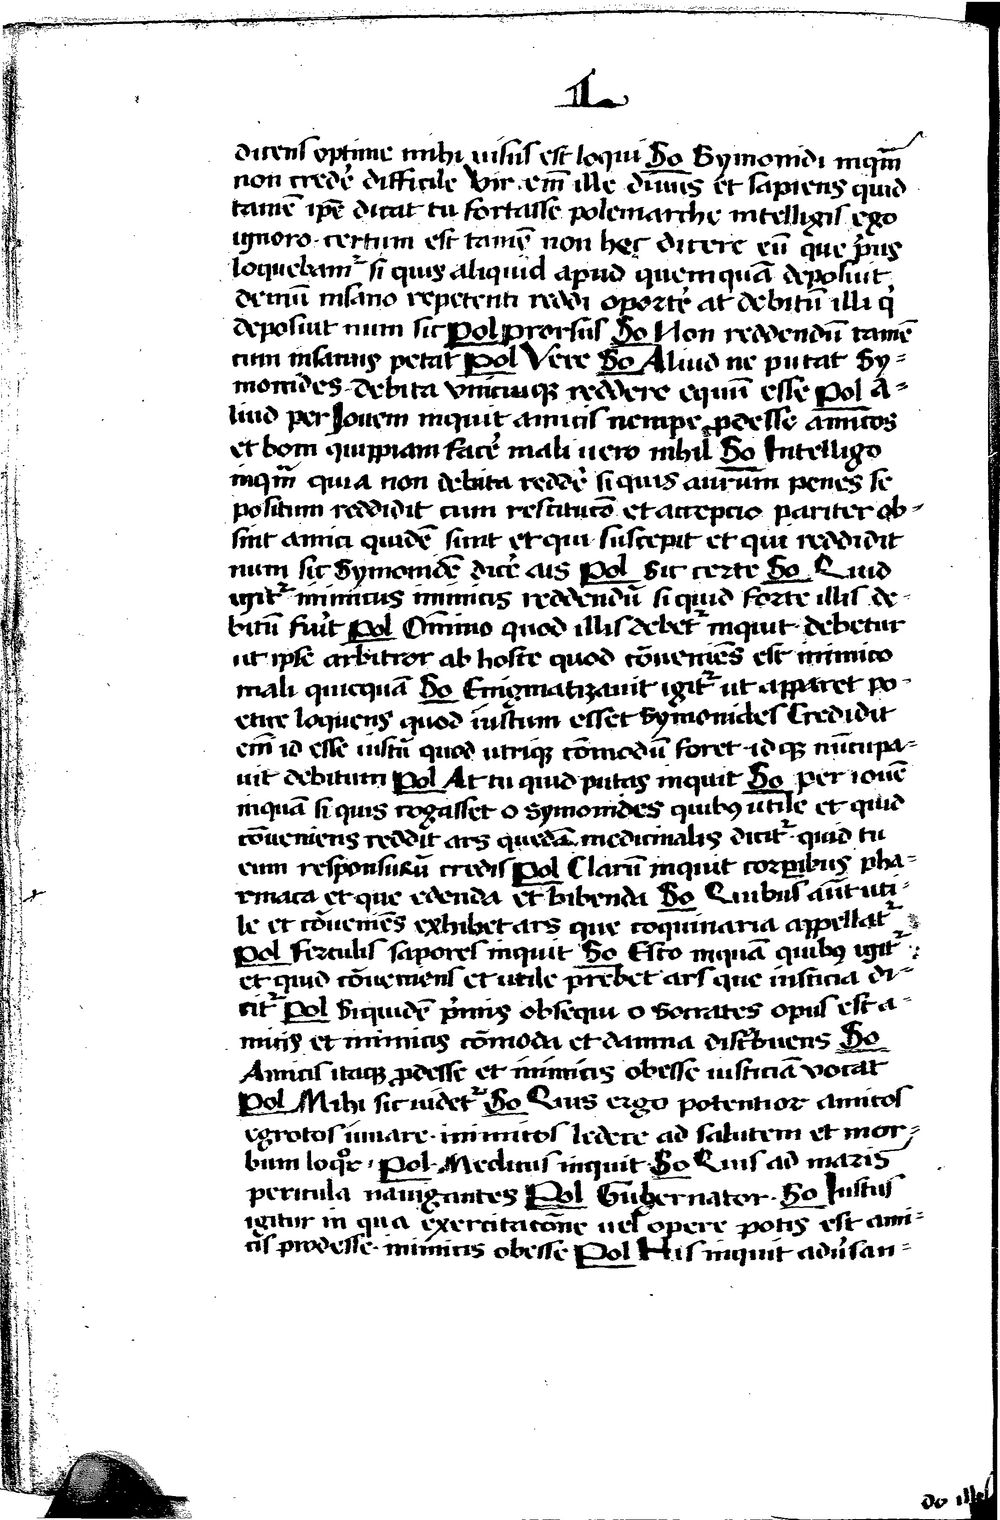 L
dicens optime mihi uisus est loqui So Symonidi inqm̄
non crede᷒ difficile Vir em̄ ille diuin᷒ et sapiens quid
tamē ip̄e dicat tu fortasse polemarche intelligis ego
ignoro. certum est tamē non hęc dicere eū que p᷒us
loquebam᷒ si quis aliquid apud quemquā deposuit
demū insano repetenti reddi oporte᷒ at debitū illi q᷒
deposiut num sic Pol prorsus So Non reddendū tamē
cum insanus petat Pol Vere So Aliud ne putat Sy=
monides. debita unicuiqꝫ reddere equū esse Pol A=
liud per Iouem inquit amicis nempe ꝓdesse amicos
et boni quippiam face᷒ mali uero nihil So Intelligo
inqm̄ quia non debita redde᷒ si quis aurum penes se
positum reddidit cum restitucō et accepcio pariter ob=
sint amici quidē sint et qui suscepit et qui reddidit
num sic Symonidē dice᷒ ais Pol Sic certe So Quid
igit᷒ inimicus inimicis reddendū si quid forte illis de-
bitū fu᷒it Pol Om̄ino quod illis debet᷒ inquit. debetur
ut ipse arbitror ab hoste quod cōueniēs est inimico
mali quicquā So Enigmatizauit igit᷒ ut apparet po-
etice loquens quod iustum esset Symonides Credidit
em̄ id esse iustū quod utriqꝫ cōmodū foret. idqꝫ nūcupa=
uit debitum Pol At tu quid putas inquit So per iouē
inquā si quis rogasset o Symonides quibꝰ utile et quid
cōueniens reddit ars quedā medicinalis dicit᷒. quid tu
eum responsurū credis Pol Clarū inquit corꝑibus pha=
rmaca et que edenda et bibenda So Quibus aūt uti-
le et cōueniēs exhibet ars que coquinaria appellat᷒
Pol Ferculis sapores inquit So Esto inquā quibꝰ igit᷒
et quid cōueniens et utile prebet ars que iusticia di=
cit᷒ Pol Siquidē p᷒mis obsequi o Socrates opus est a=
micis et inimicis cōmoda et damna dist᷒buens So
Amicis itaqꝫ ꝓdesse et inimicis obesse iusticiā vocat
Pol Mihi sic uidet᷒ So Quis ergo potentior amicos
egrotos iuuare. inimicos ledere ad salutem et mor=
bum loqꝰr. Pol. Medicus inquit. So Quis ad maris
pericula nauigantes Pol Gubernator. So Iustus
igitur in qua exercitacōne uel opere potis est ami=
cis prodesse. inimicis obesse Pol His inquit adu᷒san=
do illis